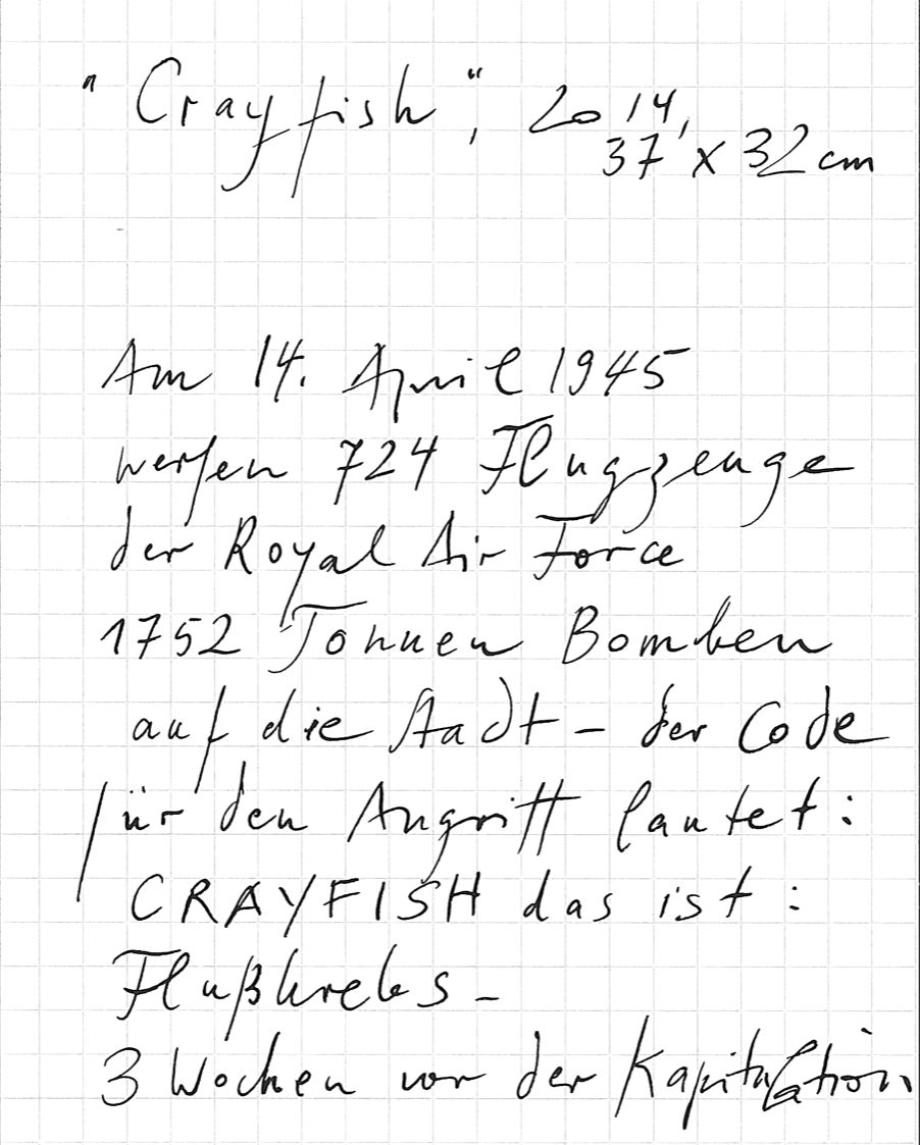 "Crayfish", 2014,
37 x 32 cm
Am 14. April 1945
werfen 724 Flugzeuge
der Royal Air Force
1752 Tonnen Bomben
auf die Stadt – der Code
für den Angriff lautet:
CRAYFISH das ist:
Flußkrebs –
3 Wochen vor der Kapitulation